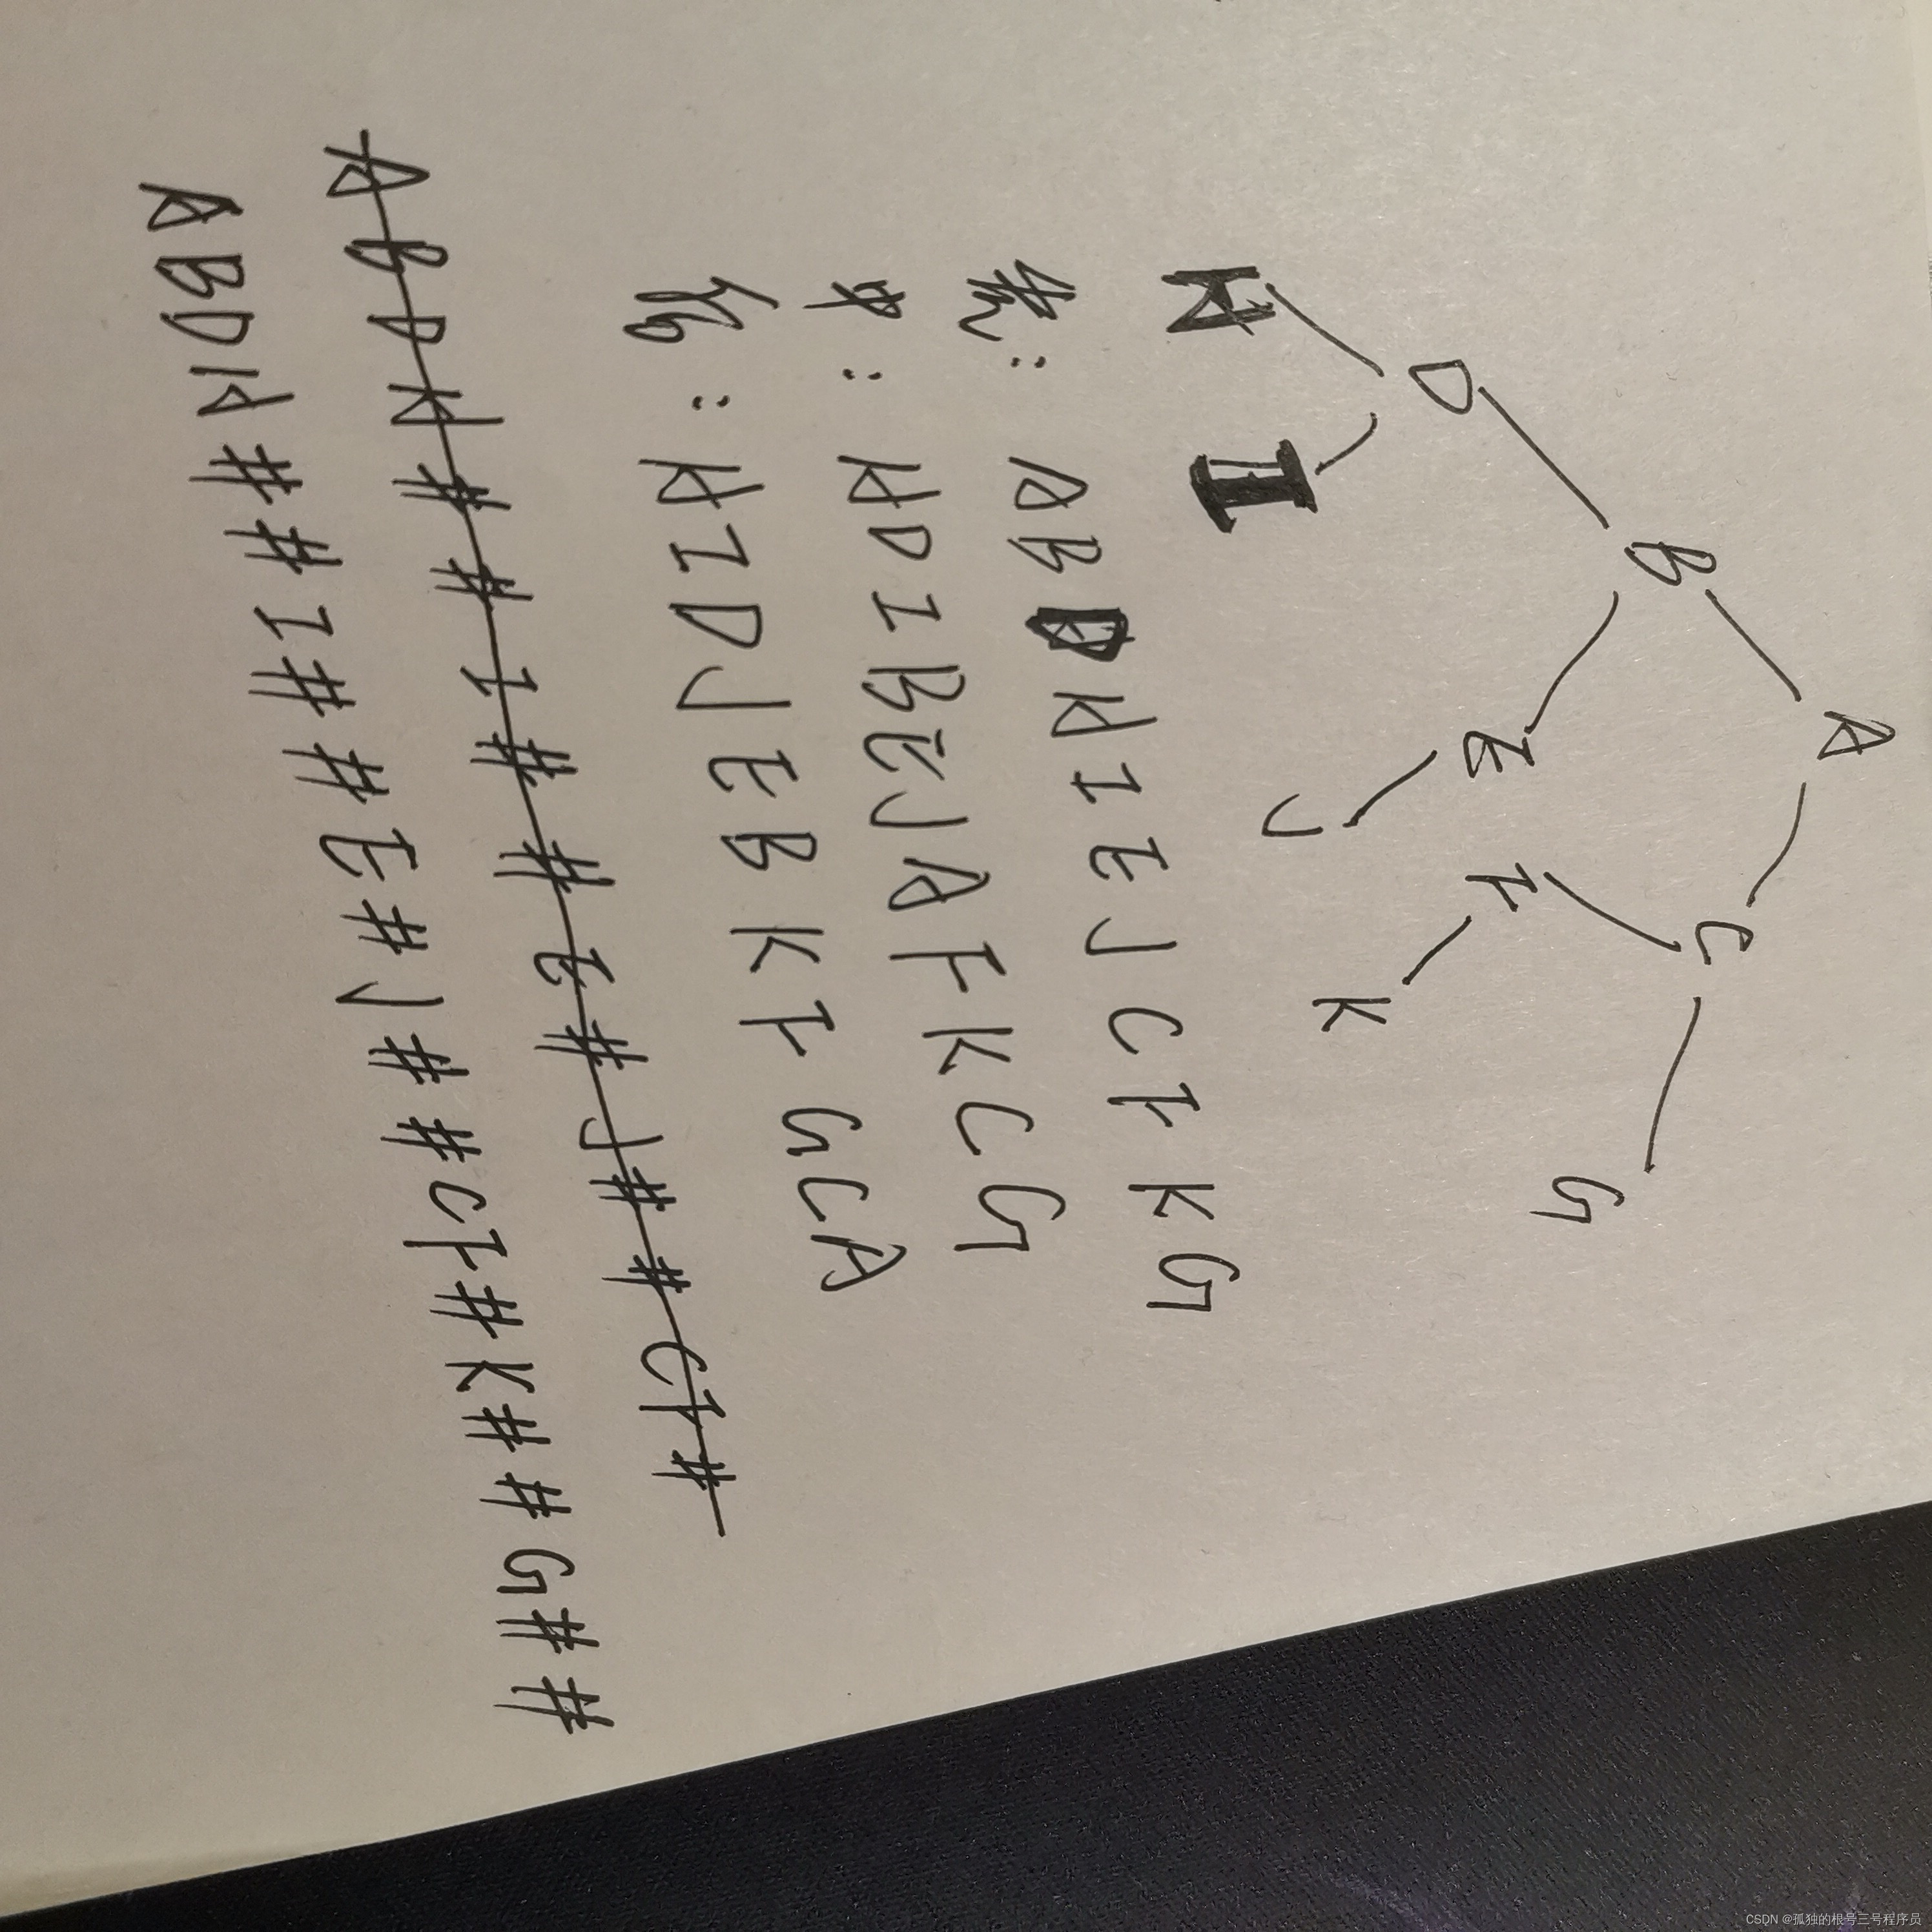 A
B C
D E F G
H I J K
先: ABDHIEJCFKG
中: HDIBEJAFKCG
后: HIDJEBKFGCA
ABDH##I##E#J##CF#
ABDH##I##E#J##CF#K##G##
CSDN @孤独的根号三号程序员